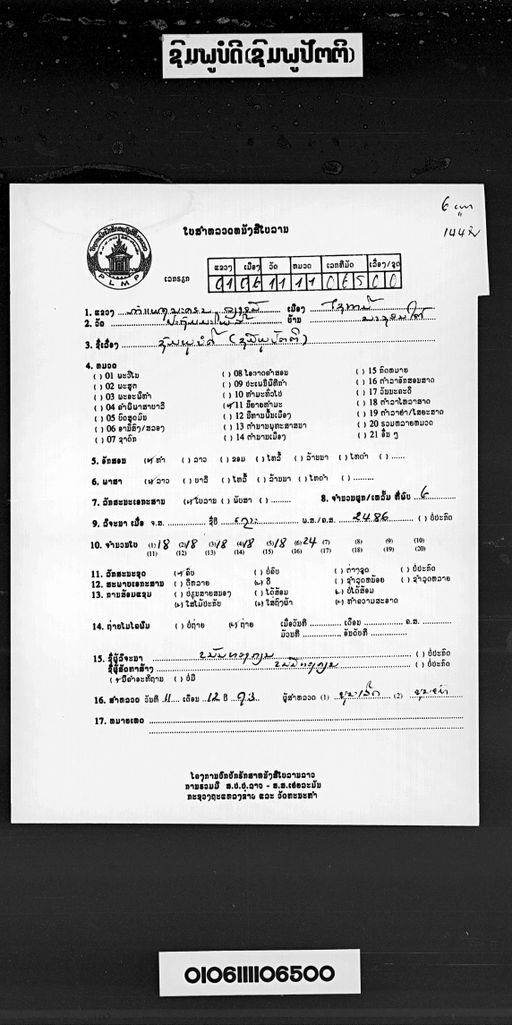 ຊົມພູບໍດີ(ຊົມພູປັຕຕິ)
6 ຜູກ
144 ໃບ
ໃບສຳຫລວດຫນັງສືໃບລານ
PLMP
ແຂວງ ເມືອງ ວັດ ຫມວດ ເລກທີມັດ ເລື່ອງ/ຊຸດ
ເລກຣຫັດ 01 06 11 11 065 00
1. ແຂວງ ກຳແພງນະຄອນ ວຽງຈັນ ເມືອງ ໄຊທານີ
2. ວັດ ບ້ານ
3. ຊື່ເລື່ອງ ຊົມພູບໍດີ (ຊົມພູປັຕຕິ)
4. ຫມວດ
( ) 01 ພະວິໄນ ( ) 08 ໂອວາດຄຳສອນ ( ) 15 ກົດຫມາຍ
( ) 02 ພະສູດ ( ) 09 ປະເພນີພິທີກຳ ( ) 16 ຕຳລາອັກສອນສາດ
( ) 03 ພະອະພິທຳ ( ) 10 ທຳມະທົ່ວໄປ ( ) 17 ວັນນະຄະດີ
( ) 04 ຄຳພີພາສາບາລີ (✓) 11 ນິຍາຍທຳມະ ( ) 18 ຕຳລາໂຫລາສາດ
( ) 05 ບົດສູດມົນ ( ) 12 ນິທານພື້ນເມືອງ ( ) 19 ຕຳລາຢາ/ໄສຍະສາດ
( ) 06 ອານິສົງ/ສລອງ ( ) 13 ຕຳນານພຸທທະສາສນາ ( ) 20 ລວມຫລາຍຫມວດ
( ) 07 ຊາດົກ ( ) 14 ຕຳນານເມືອງ ( ) 21 ອື່ນ ໆ
5. ອັກສອນ (✓) ທຳ ( ) ລາວ ( ) ຂອມ ( ) ໄທລື້ ( ) ລ້ານນາ ( ) ໄທດຳ ( )
6. ພາສາ (✓) ລາວ ( ) ບາລີ ( ) ໄທລື້ ( ) ລ້ານນາ ( ) ໄທດຳ ( )
7. ລັກສະນະເອກະສານ (✓) ໃບລານ ( ) ພັບສາ ( ) 8. ຈຳນວນຜູກ/ເຫລັ້ມ ທີ່ພົບ 6
9. ວັຈະນາ ເມື່ອ ຈ.ສ. ຊື່ປີ ພ.ສ./ຄ.ສ. 2486 ( ) ບໍ່ປະກົດ
10. ຈຳນວນໃບ (1) 18 (2) 18 (3) 18 (4) 18 (5) 18 (6) 24 (7) (8) (9) (10)
(11) (12) (13) (14) (15) (16) (17) (18) (19) (20)
11. ລັກສະນະຊຸດ (✓) ຄົບ ( ) ບໍ່ຄົບ ( ) ຕ່າງຊຸດ ( ) ບໍ່ປະກົດ
12. ສະພາບເອກະສານ ( ) ດີຫລາຍ (✓) ດີ ( ) ຊຳລຸດຫນ້ອຍ ( ) ຊຳລຸດຫລາຍ
13. ການສ້ອມແຊມ ( ) ປ່ຽນສາຍສນອງ ( ) ໄດ້ສ້ອມ (✓) ບໍ່ໄດ້ສ້ອມ
(✓) ໃສ່ໄມ້ປະກັບ (✓) ໃສ່ຖົງຜ້າ (✓) ທຳຄວາມສະອາດ
14. ຖ່າຍໄມໂຄຟິມ ( ) ບໍ່ຖ່າຍ (✓) ຖ່າຍ ເມື່ອວັນທີ ເດືອນ ຄ.ສ.
ມ້ວນທີ ອັນດັບທີ
15. ຊື່ຜູ້ຣິຈະນາ ( ) ບໍ່ປະກົດ
ຊື່ຜູ້ສັດທາສ້າງ ( ) ບໍ່ປະກົດ
(✓) ມີຄຳອະທິຖານ ( ) ບໍ່ມີ
16. ສຳຫລວດ ວັນທີ 11 ເດືອນ 12 ປີ 93 ຜູ້ສຳຫລວດ (1) (2)
17. ຫມາຍເຫດ
ໂຄງການປົກປັກຮັກສາຫນັງສືໃບລານລາວ
ການຮ່ວມມື ສ.ປ.ປ.ລາວ - ສ.ສ.ເຢຍລະມັນ
ກະຊວງຖະແຫລງຂ່າວ ແລະ ວັດທະນະທຳ
010611106500